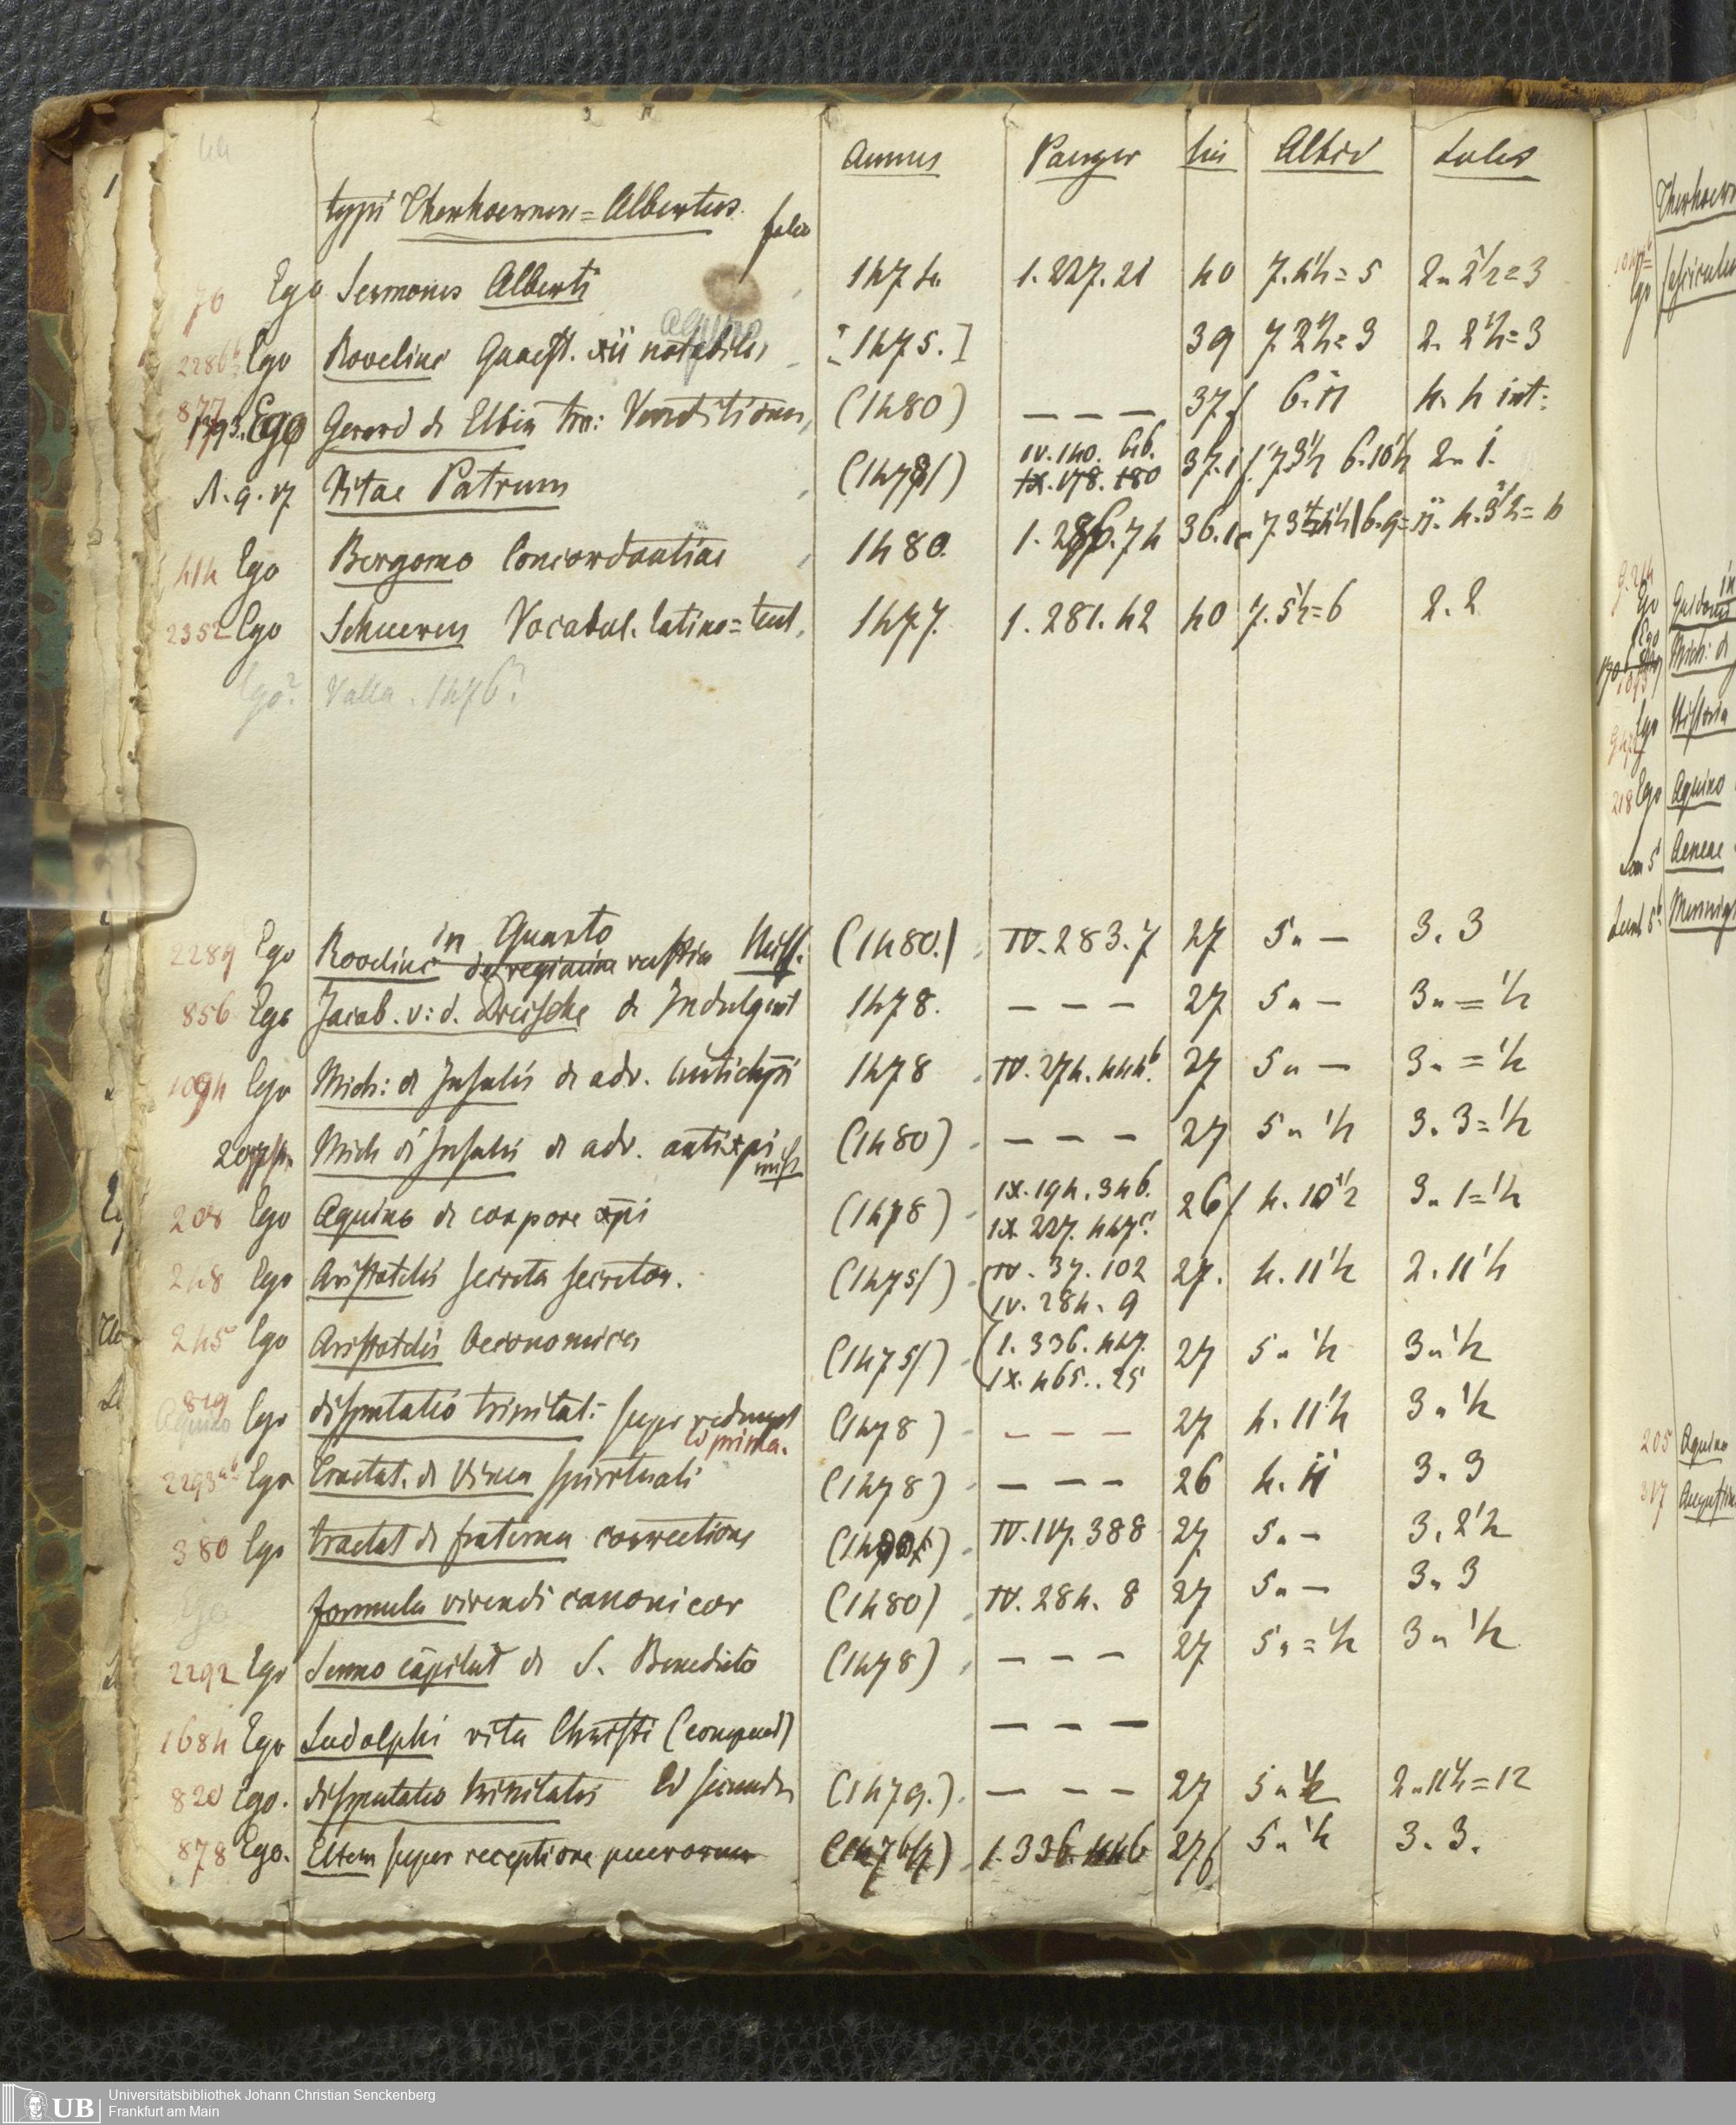 44
Annus Panzer lin Altid Latit
typi Therhoernen = Albertus.
folio
70 Ego Sermones Alberti 1474. 1. 227. 21 40 7. 4 1/2 = 5 2 " 2 1/2 = 3
aquino
2286b Ego Rovelinc Quaest. xii notabiles [1475.] 39 7. 2 1/2 = 3 2. 2 1/2 = 3
877 Ego Gerard de Elten Venditionum (1480) — — — 37 6. 11 4. 4 int:
A. 9. 17 Vitae Patrum IV. 140. IX. 178. 180 2 " 1.
414 Ego Bergomo Concordantiae 1480. 1. 286. 74
2352 Ego Schueren Vocabul. latino = teut. 1477. 1. 281. 42 40 7. 5 1/2 = 6 2. 2
Ego? Valla. 1476?
in Quarto
2289 Ego Roveline de regimine rustic Miss. (1480.) IV. 283. 7 27 5 " — 3. 3
856 Ego Jacob. v: d. Dreische de Indulgent 1478. — — — 27 5 " — 3 " = 1/2
1094 Ego Mich: de Insulis de adv. Antichri 1478 IV. 274. 444b. 27 5 " — 3 " = 1/2
Mich de Insulis de adv. antixpi (1480) — — — 27 5 " 1/2 3. 3 = 1/2
misst
208 Ego Aquino de corpore xpi (1478) IX. 194. 346. 26 4. 10 1/2 3 " 1 = 1/2
IX. 227. 447c
248 Ego Aristotelis secreta secretor. (1475) IV. 37. 102 27. 4. 11 1/2 2. 11 1/2
IV. 284. 9
245 Ego Aristotelis Oeconomica (1475) 1. 336. 447. 27 5 " 1/2 3 " 1/2
IX. 465.. 25
819 Ego disputatio trinitat: super redempt (1478) — — — 27 4. 11 1/2 3 " 1/2
Aquino Ed prima.
2293ab Ego Tractat. de Vinea spirituali (1478) — — — 26 4. 11 3. 3
380 Ego tractat de fraterna correctione IV. 117. 388 27 5 " — 3. 2 1/2
Ego formula vivendi canonicor (1480) IV. 284. 8 27 5 " — 3 " 3
2292 Ego Sermo capitul de S. Benedicto (1478) — — — 27 5 " = 1/2 3 " 1/2
1684 Ego Ludolphi vita Christi (compend) — — —
820 Ego. disputatio trinitatis Ed secunda (1479.) — — — 27 5 " 1/2 2 " 11 1/2 = 12
878 Ego. Elten super receptione puerorum (1476/7) 1. 336. 446 27 5 " 1/2 3. 3.
Therhoern
Ego
Ego
Mich: d
Ego Historia
218 Ego Aquino
Aeneae
205 Aquino
317 Augustin
UB Universitätsbibliothek Johann Christian Senckenberg
Frankfurt am Main